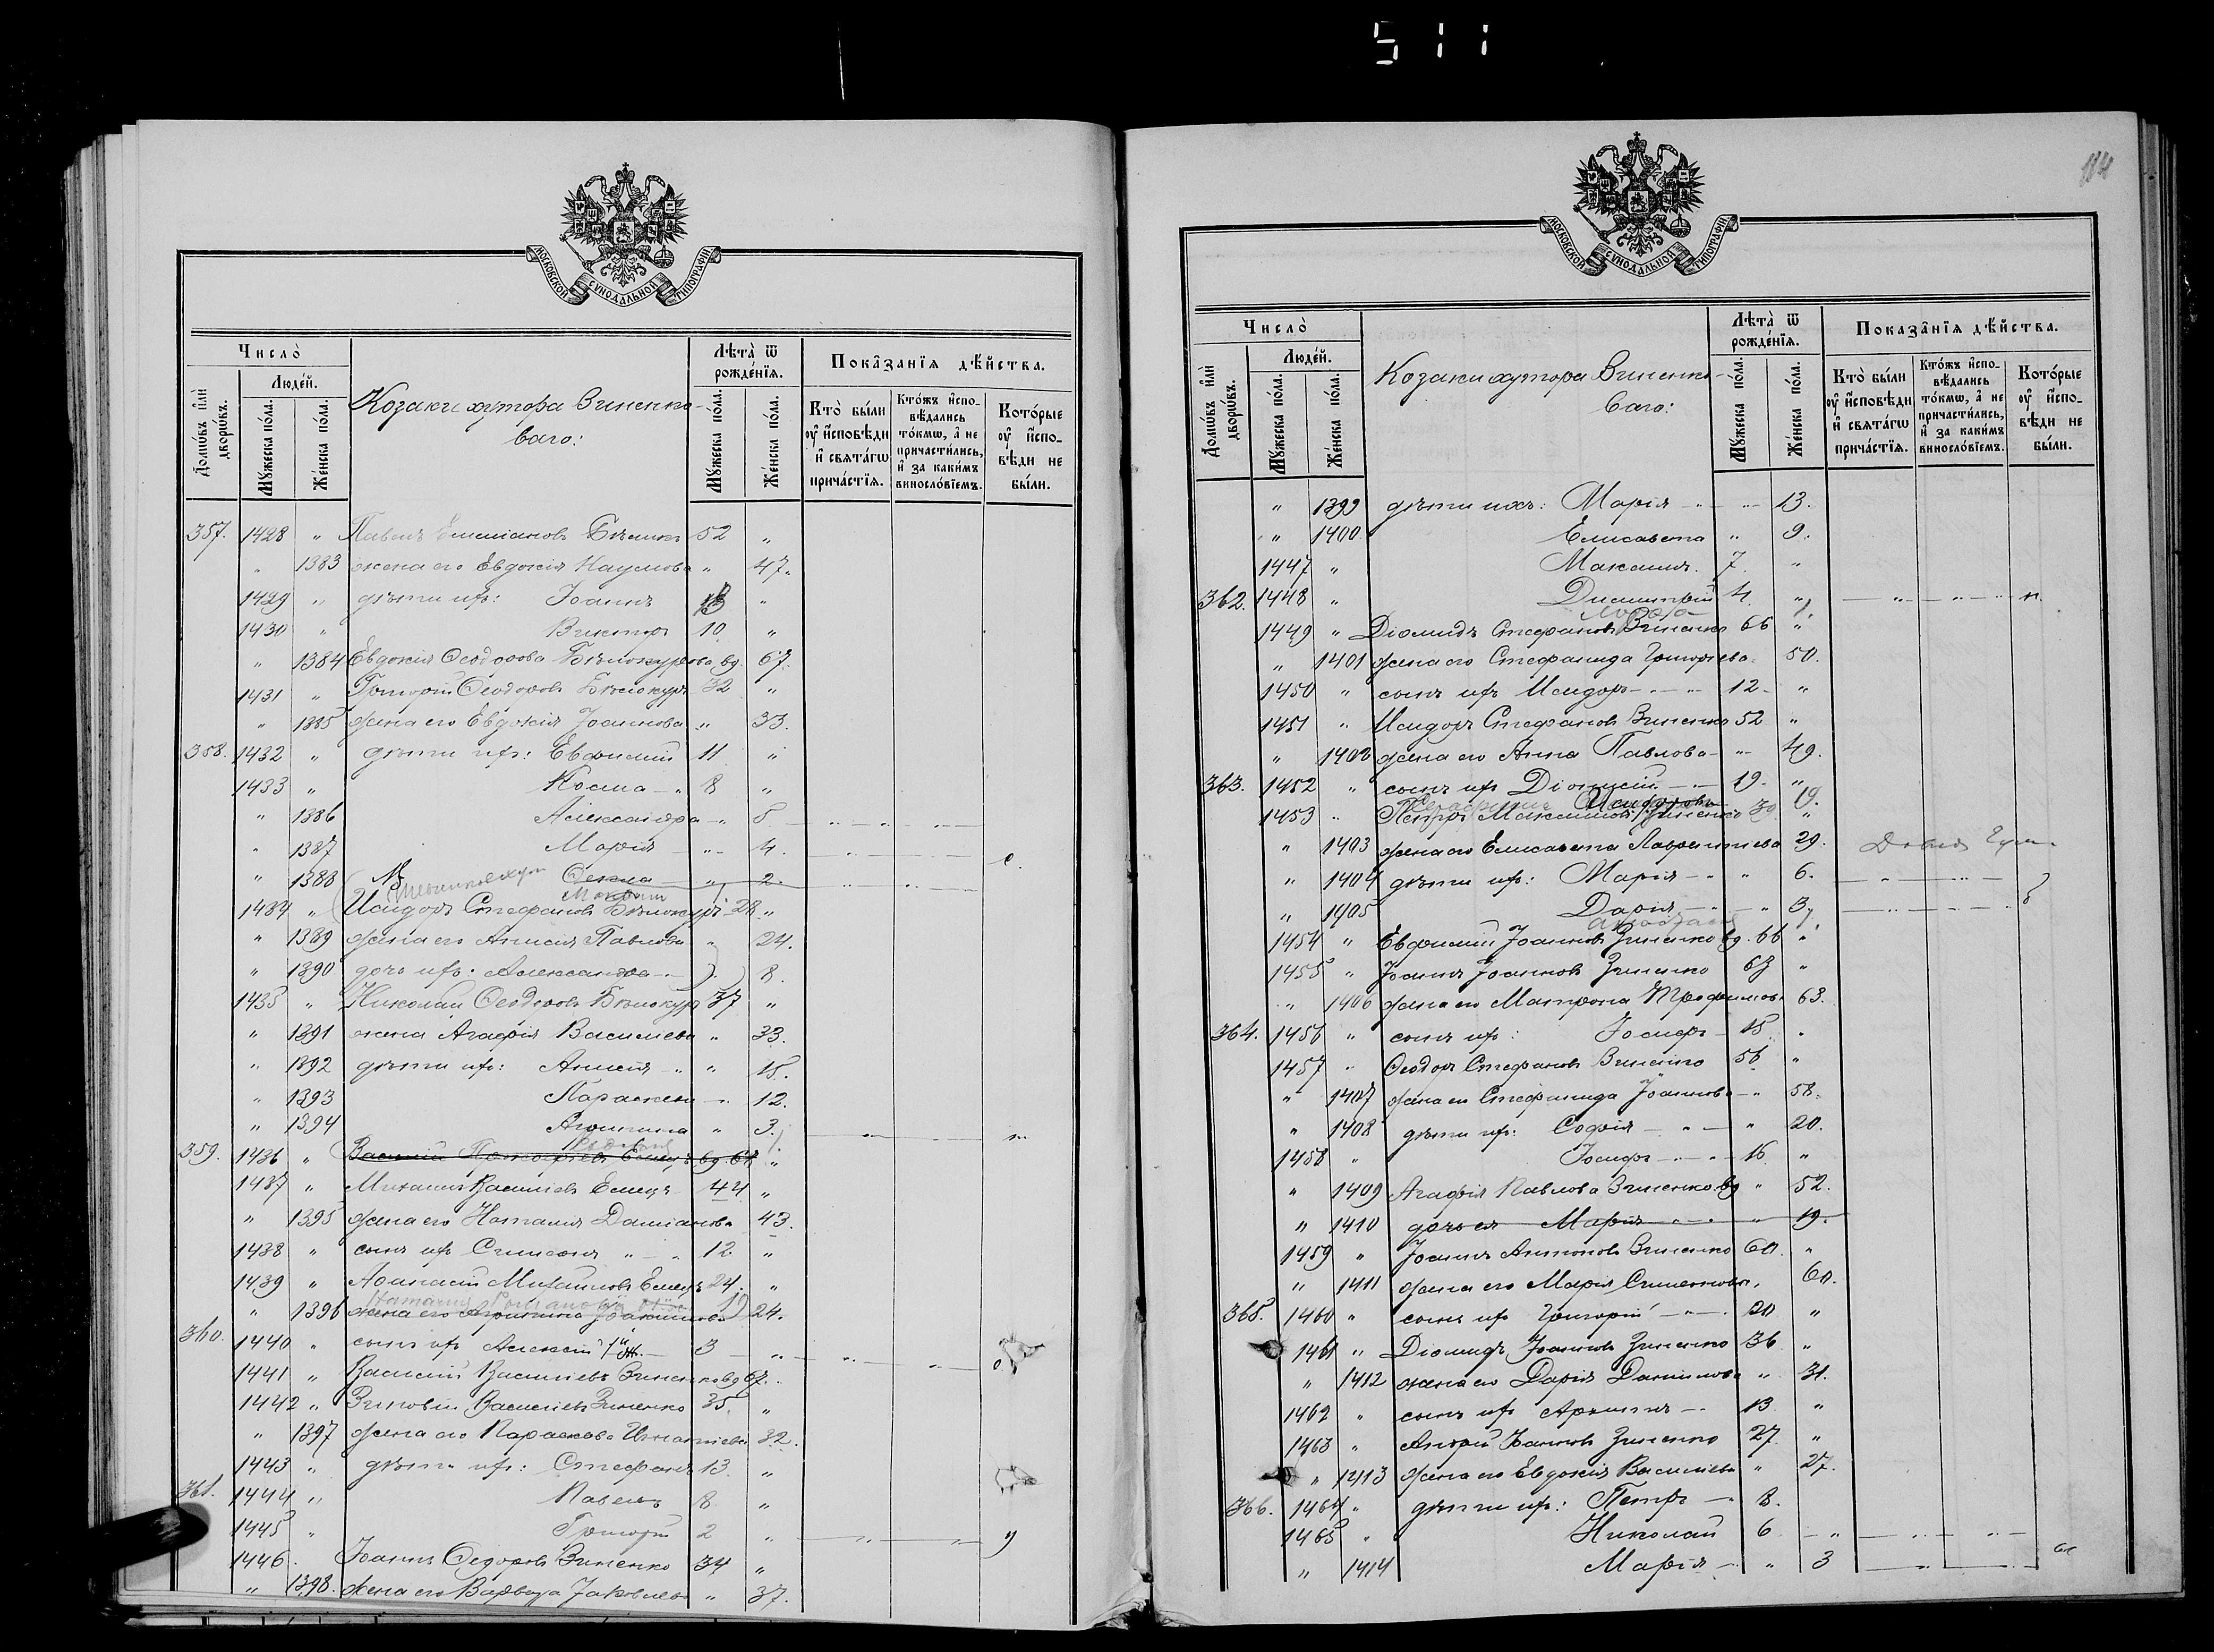 511
МОСКОВСКОЙ СѴНОДАЛЬНОЙ ТИПОГРАФІИ
Число̀
Люде́й.
Домѡ́въ и҆лѝ дворѡ́въ.
Мꙋ́жеска по́ла.
Же́нска по́ла.
Козаки хутора Зиненко-
ваго:
Лѣ́та ѿ рожде́нїѧ.
Мꙋ́жеска по́ла.
Же́нска по́ла.
Показа̑нїѧ дѣ́йства.
Кто̀ бы́ли ᲂу҆ и҆сповѣди и҆ свѧта́гѡ прича́стїѧ.
Кто́жъ и҆спо-вѣ́дались то́кмѡ, а҆ не причасти́лись, и҆ за каки́мъ винослові́емъ.
Кото́рые ᲂу҆ и҆спо-вѣди не бы́ли.
357. 1428 " Павелъ Емеліановъ 52 "
" 1383 жена его Евдокія Наумова " 47.
1429 " дѣти ихъ: Іоаннъ "
1430 " Викторъ 10 "
" 1384 Евдокія Ѳеодорова Бѣлокурова вд. 67.
1431 " Григорій Ѳеодоровъ Бѣлокуръ 32 "
" 1385 жена его Евдокія Іоаннова " 33.
358. 1432 " дѣти ихъ: Евфимій 11 "
1433 " Косма 8 "
" 1386 Александра 5
" 1387 Марія " 4.
" 1388 Ѳекла " 2.
1434 " Исидоръ Стефановъ Бѣлокуръ 28 "
" 1389 жена его Анисія Павлова " 24.
" 1390 дочь ихъ: Александра 8.
1435 " Николай Ѳеодоровъ Бѣлокур 37 "
" 1391 жена Агафія Василіева " 33.
" 1392 дѣти ихъ: Анисія " 15.
" 1393 Параскева 12.
" 1394 Агрипина " 3.
359. 1436 " Василій вд. "
1437 " Михаилъ Василіевъ Емецъ 44 "
" 1395 жена его Наталія Даміанова 43.
1438 " сынъ ихъ Симеонъ " 12 "
1439 " Аѳанасій Михаиловъ Емецъ 24. "
" 1396 жена его Агрипина 24.
360. 1440 " сынъ ихъ Алексій 3
1441 " Василій Василіевъ Зиненко вд 67.
1442 " Зиновій Василіевъ Зиненко 35. "
" 1397 жена его Параскева Игнатіева 32.
1443 " дѣти ихъ: Стефанъ 13. "
361. 1444 " Павелъ 8 "
1445 " Григорій 2 "
1446. Іоаннъ Ѳедоровъ Зиненко 34 "
" 1398. жена его Варвара Іаковлева " 37.
МОСКОВСКОЙ СѴНОДАЛЬНОЙ ТИПОГРАФІИ
Число̀
Люде́й.
Домѡ́въ и҆лѝ дворѡ́въ.
Мꙋ́жеска по́ла.
Же́нска по́ла.
Козаки хутора Зиненко-
ваго:
Лѣ́та ѿ рожде́нїѧ.
Мꙋ́жеска по́ла.
Же́нска по́ла.
Показа̑нїѧ дѣ́йства.
Кто̀ бы́ли ᲂу҆ и҆сповѣди и҆ свѧта́гѡ прича́стїѧ.
Кто́жъ и҆спо-вѣ́дались то́кмѡ, а҆ не причасти́лись, и҆ за каки́мъ винослові́емъ.
Кото́рые ᲂу҆ и҆спо-вѣди не бы́ли.
" 1399 дѣти ихъ: Марія 13.
" 1400 Елисавета " 9.
1447 " Максимъ. 7. "
362. 1448 " Димитрій 4. "
1449 " Діомидъ Стефановъ Зиненко 66 "
" 1401 жена его Стефанида Григоріева 50.
1450 " сынъ ихъ Исидоръ 12 "
1451 " Исидоръ Стефановъ Зиненко 52 "
" 1402 жена его Анна Павлова 49.
363. 1452 " сынъ ихъ Діонисій 19. "
1453 " Петръ Максимовъ Зиненко "
" 1403 жена его Елисавета Лаврентіева 29.
" 1404 дѣти ихъ: Марія " 6.
" 1405 Дарія " 3
1454 " Евфимій Іоанновъ Зиненко вд. 66 "
1455 " Іоаннъ Іоанновъ Зиненко 63 "
" 1406 жена его Матрона Трофимова 63.
364. 1456 " сынъ ихъ: Іосифъ 15 "
1457 " Ѳеодоръ Стефановъ Зиненко 56 "
" 1407 жена его Стефанида Іоаннова " 58.
" 1408 дѣти ихъ: Софія " 20.
1458 " Іосифъ 16 "
" 1409 Агафія Павлова Зиненко вд " 52.
" 1410 дочь ея Марія " 19.
1459 " Іоаннъ Антоновъ Зиненко 60. "
" 1411 жена его Марія Симеонова. 60.
365. 1460 " сынъ ихъ Григорій 20 "
1461 " Діомидъ Іоанновъ Зиненко 36 "
" 1412 жена его Дарія Даниилова " 31.
1462 " сынъ ихъ 13 "
1463 " Андрей Іоанновъ Зиненко 27 "
" 1413 жена его Евдокія Василіева " 27.
366. 1464 " дѣти ихъ: Петръ 8.
1465 " Николай 6 "
" 1414 Марія " 3